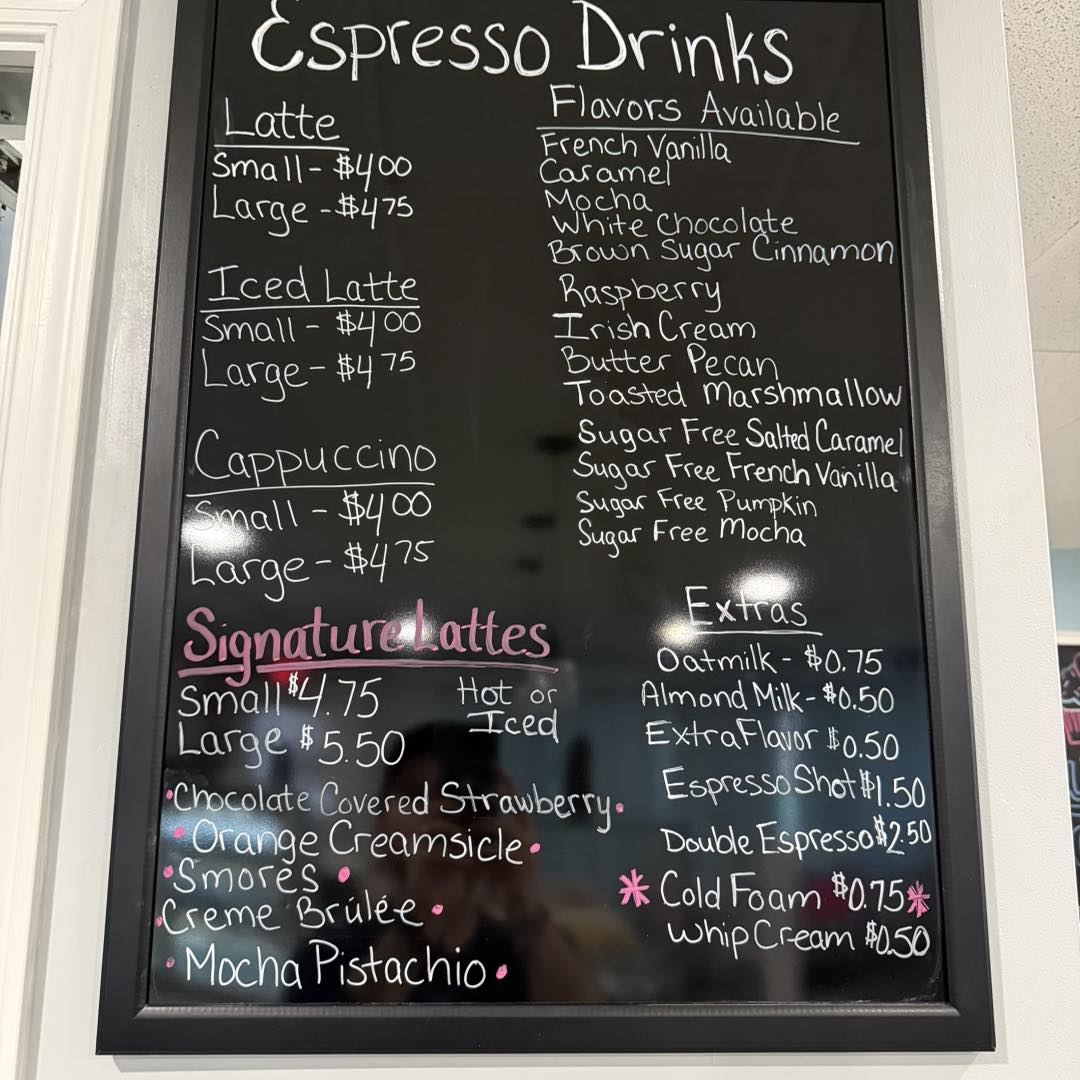 Espresso Drinks
Latte
Small - $4.00
Large - $4.75
Iced Latte
Small - $4.00
Large - $4.75
Cappuccino
Small - $4.00
Large - $4.75
Signature Lattes
Small $4.75
Large $5.50
Hot or
Iced
•Chocolate Covered Strawberry•
•Orange Creamsicle•
•Smores•
•Creme Brúlée•
•Mocha Pistachio•
Flavors Available
French Vanilla
Caramel
Mocha
White Chocolate
Brown Sugar Cinnamon
Raspberry
Irish Cream
Butter Pecan
Toasted Marshmallow
Sugar Free Salted Caramel
Sugar Free French Vanilla
Sugar Free Pumpkin
Sugar Free Mocha
Extras
Oatmilk - $0.75
Almond Milk - $0.50
Extra Flavor $0.50
Espresso Shot $1.50
Double Espresso $2.50
* Cold Foam $0.75 *
Whip Cream $0.50